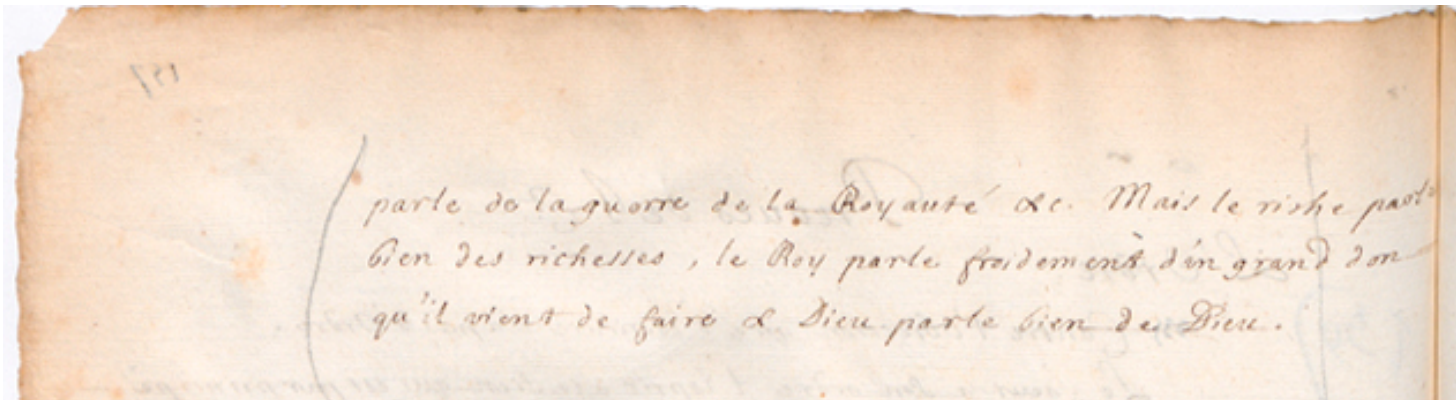 parle de la guerre de la Royauté &c. Mais le riche parle
bien des richesses, le Roy parle froidement d'un grand don
qu'il vient de faire & Dieu parle bien de Dieu.